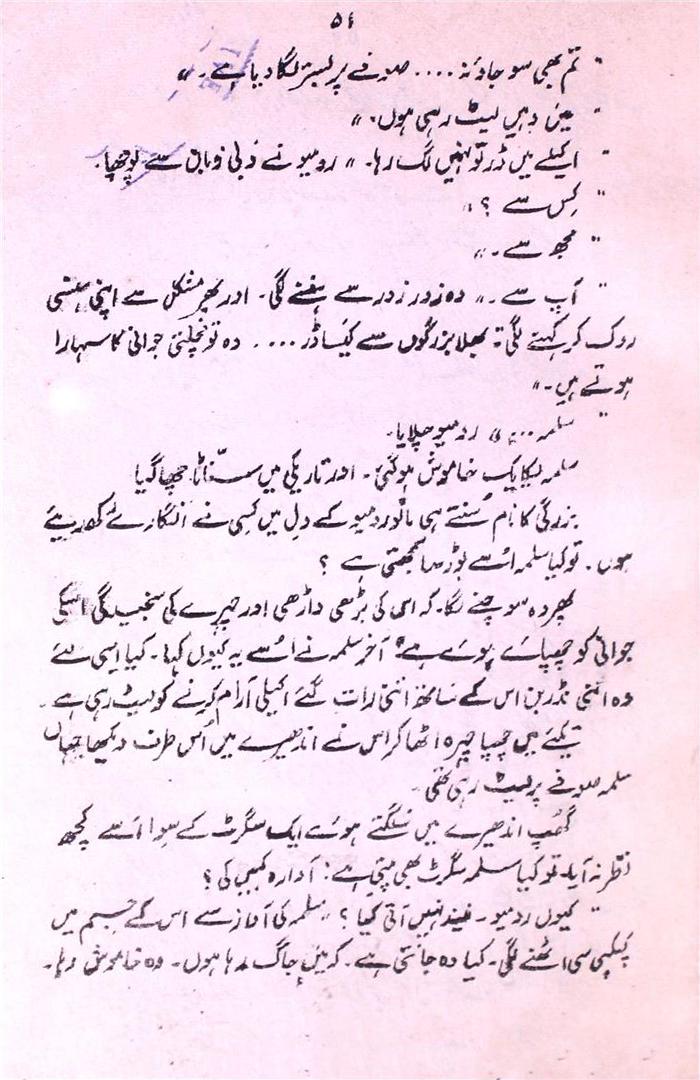 ۵۶
" تم بھی سو جاؤ نہ .... صوفے پر بستر لگا دیا ہے۔ "
" میں وہیں لیٹ رہی ہوں۔ "
" اکیلے میں ڈر تو نہیں لگ رہا۔ " رومیو نے دبی زبان سے پوچھا۔
" کس سے ؟ "
" مجھ سے۔ "
" آپ سے۔ " وہ زور زور سے ہنسنے لگی۔ اور پھر مشکل سے اپنی ہنسی
روک کر کہنے لگی: بھلا بزرگوں سے کیسا ڈر .... وہ تو مچلتی جوانی کا سہارا
ہوتے ہیں۔ "
" سلمہ .... " رومیو چلایا۔
سلمہ یکایک خاموش ہو گئی۔ اور تاریکی میں سنّاٹا چھا گیا
بزرگی کا نام سُنتے ہی مانو رومیو کے دل میں کسی نے انگارے رکھ دیئے
ہوں۔ تو کیا سلمہ اُسے بوڑھا سمجھتی ہے ؟
پھر وہ سوچنے لگا۔ کہ اس کی بڑھی داڑھی اور چہرے کی سنجیدگی اسکی
جوانی کو چھپائے ہوئے ہے آخر سلمہ نے اُسے یہ کیوں کہا۔ کیا اسی لئے
وہ اتنی نڈر بن اس کے ساتھ اتنی رات گئے اکیلی آرام کرنے کو لیٹ رہی ہے۔
تکیئے میں چھپا چہرہ اٹھا کر اس نے اندھیرے میں اُس طرف دیکھا جہاں
سلمہ صوفے پر لیٹ رہی تھی۔
گھُپ اندھیرے میں سُلگتے ہوئے ایک سگرٹ کے سوا اُسے کچھ
نظر نہ آیا۔ تو کیا سلمہ سگرٹ بھی پیتی ہے: آوارہ کہیں کی ؟
" کیوں رومیو۔ نیند نہیں آتی کیا ؟ " سلمہ کی آواز سے اس کے جسم میں
کپکپی سی اٹھنے لگی۔ کیا وہ جانتی ہے۔ کہ میں جاگ رہا ہوں۔ وہ خاموش رہا۔